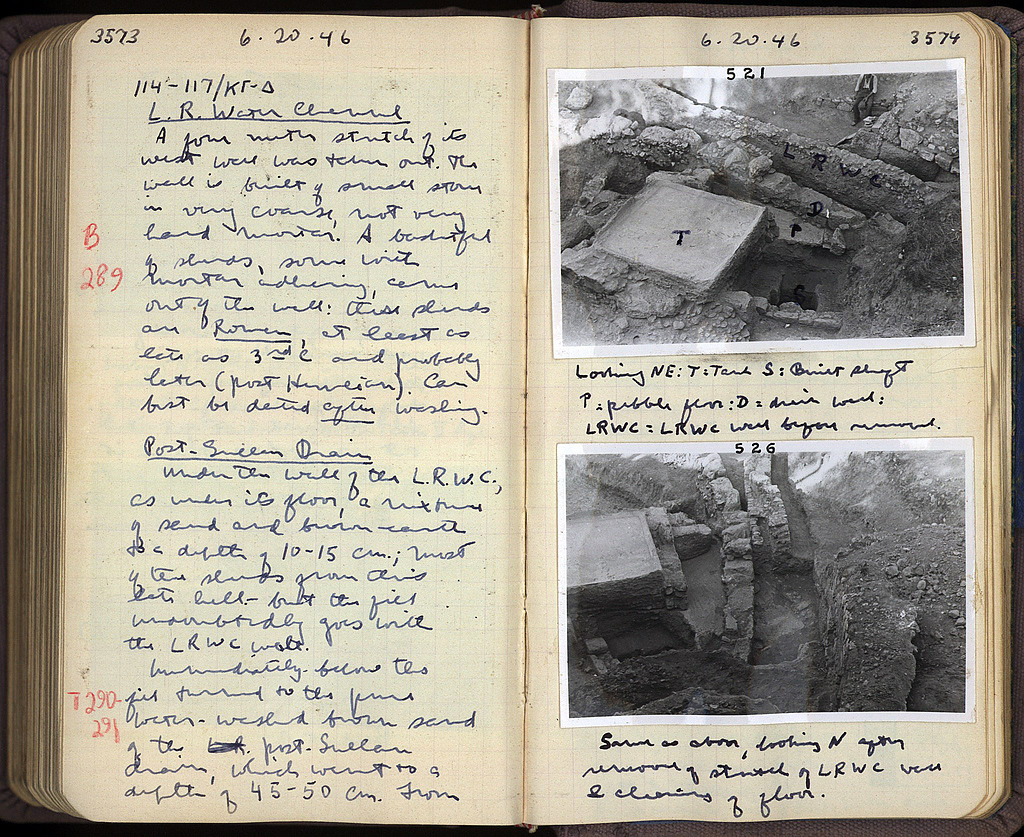 3573
6.20.46
114-117/ΚΓ-Δ
L. R. Water Channel
A four meter stretch of its
west wall was taken out. The
wall is built of small stones
in very coarse, not very
hard mortar. A basketful
B
289
of sherds, some with
mortar adhering, came
out of the wall: these sherds
are Roman, at least as
late as 3rd c and probably
later (post Herulian). Can
best be dated after washing.
Post-Sullan Drain
Under the wall of the L.R.W.C.,
as under its floor, a mixture
of sand and brown earth
to a depth of 10-15 cm.; most
of the sherds from this
late hell- but the fill
undoubtedly goes with
the LRWC wall.
Immediately below this
T 290-
291
fill turned to the pure
water-washed brown sand
of the post-Sullan
drain, which went to a
depth of 45-50 cm. From
6.20.46
3574
521
L R W C
D
P
T
S
Looking NE: T=Tank S: Built shaft
P=pebble floor: D= drain wall:
LRWC = LRWC wall before removal.
526
Same as above, looking N after
removal of stretch of LRWC wall
& cleaning of floor.